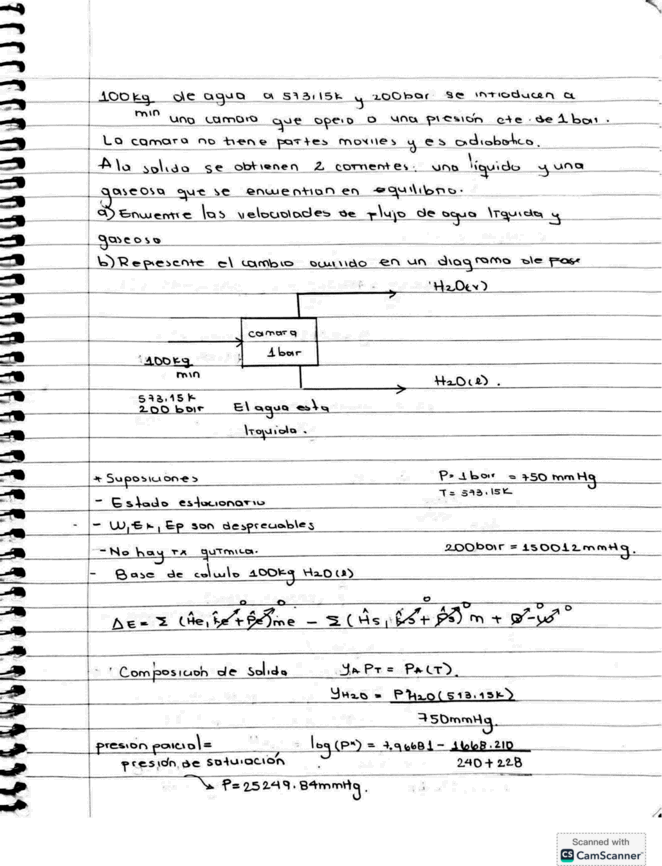 100kg de agua a 573,15k y 200bar se introducen a
min una camara que opera a una presión cte de 1bar.
La camara no tiene partes moviles y es adiabatica.
A la salida se obtienen 2 corrientes: una líquido y una
gaseosa que se encuentran en equilibrio.
a) Encuentre las velocidades de flujo de agua líquida y
gaseosa
b) Represente el cambio ocurrido en un diagrama de fase
H2O(v)
camara
1bar
100kg
min
H2O(l).
573.15K
200 bar El agua esta
líquida.
* Suposiciones P= 1bar = 750 mmHg
T= 573.15K
- Estado estacionario
- W, Ek, Ep son despreciables
- No hay rx química. 200bar = 150012mmHg.
- Base de calculo 100kg H2O(l)
0 0 0 0 0 0
ΔE = Σ (Ĥe, k̂e + p̂e) me - Σ (Ĥs, k̂s + p̂s) m + Q - W
Composición de salida yA PT = PA(T).
yH2O = P*H2O(573.15K)
750mmHg.
presion parcial = log(P*) = 7,96681 - 1668.210
presión de saturación 240+228
P=25249.84mmHg.
Scanned with
CS CamScanner